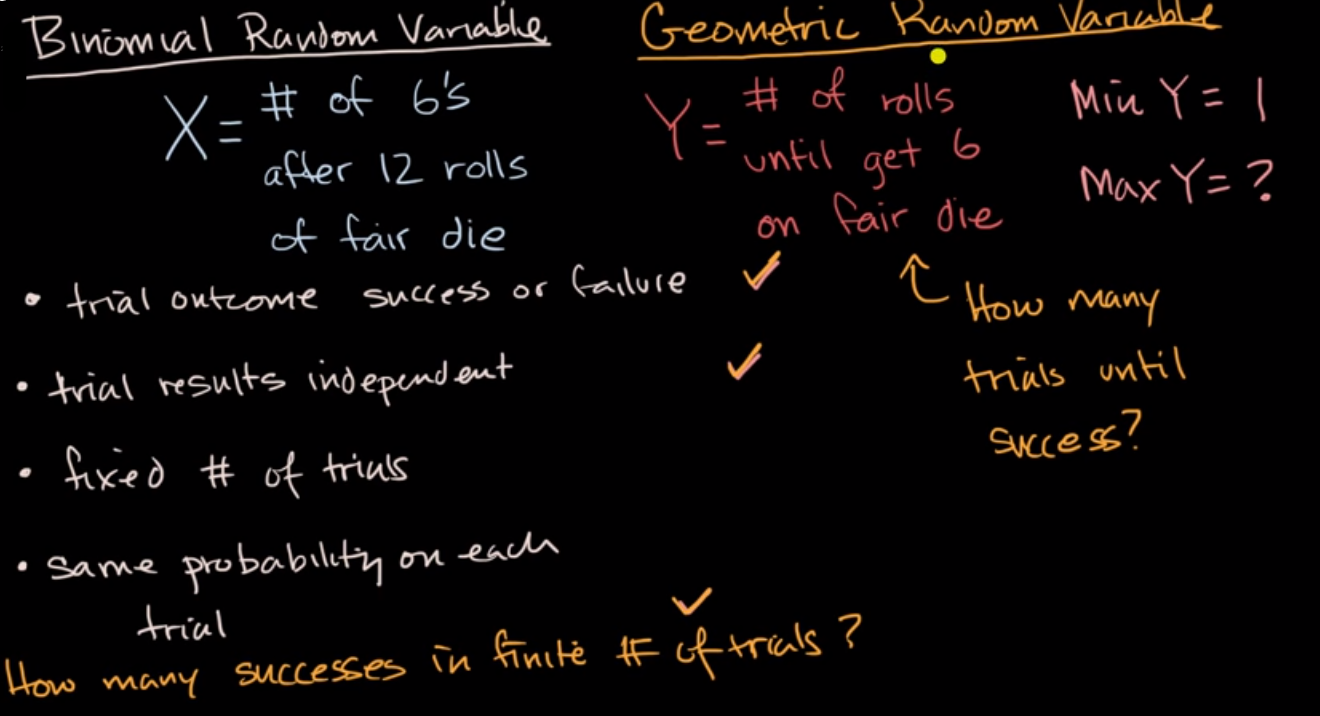 Binomial Random Variable
X = # of 6's
after 12 rolls
of fair die
Geometric Random Variable
Y = # of rolls
until get 6
on fair die
Min Y = 1
Max Y = ?
• trial outcome success or failure ✓
• trial results independent ✓
• fixed # of trials
• same probability on each
trial ✓
How many successes in finite # of trials?
↑ How many
trials until
success?